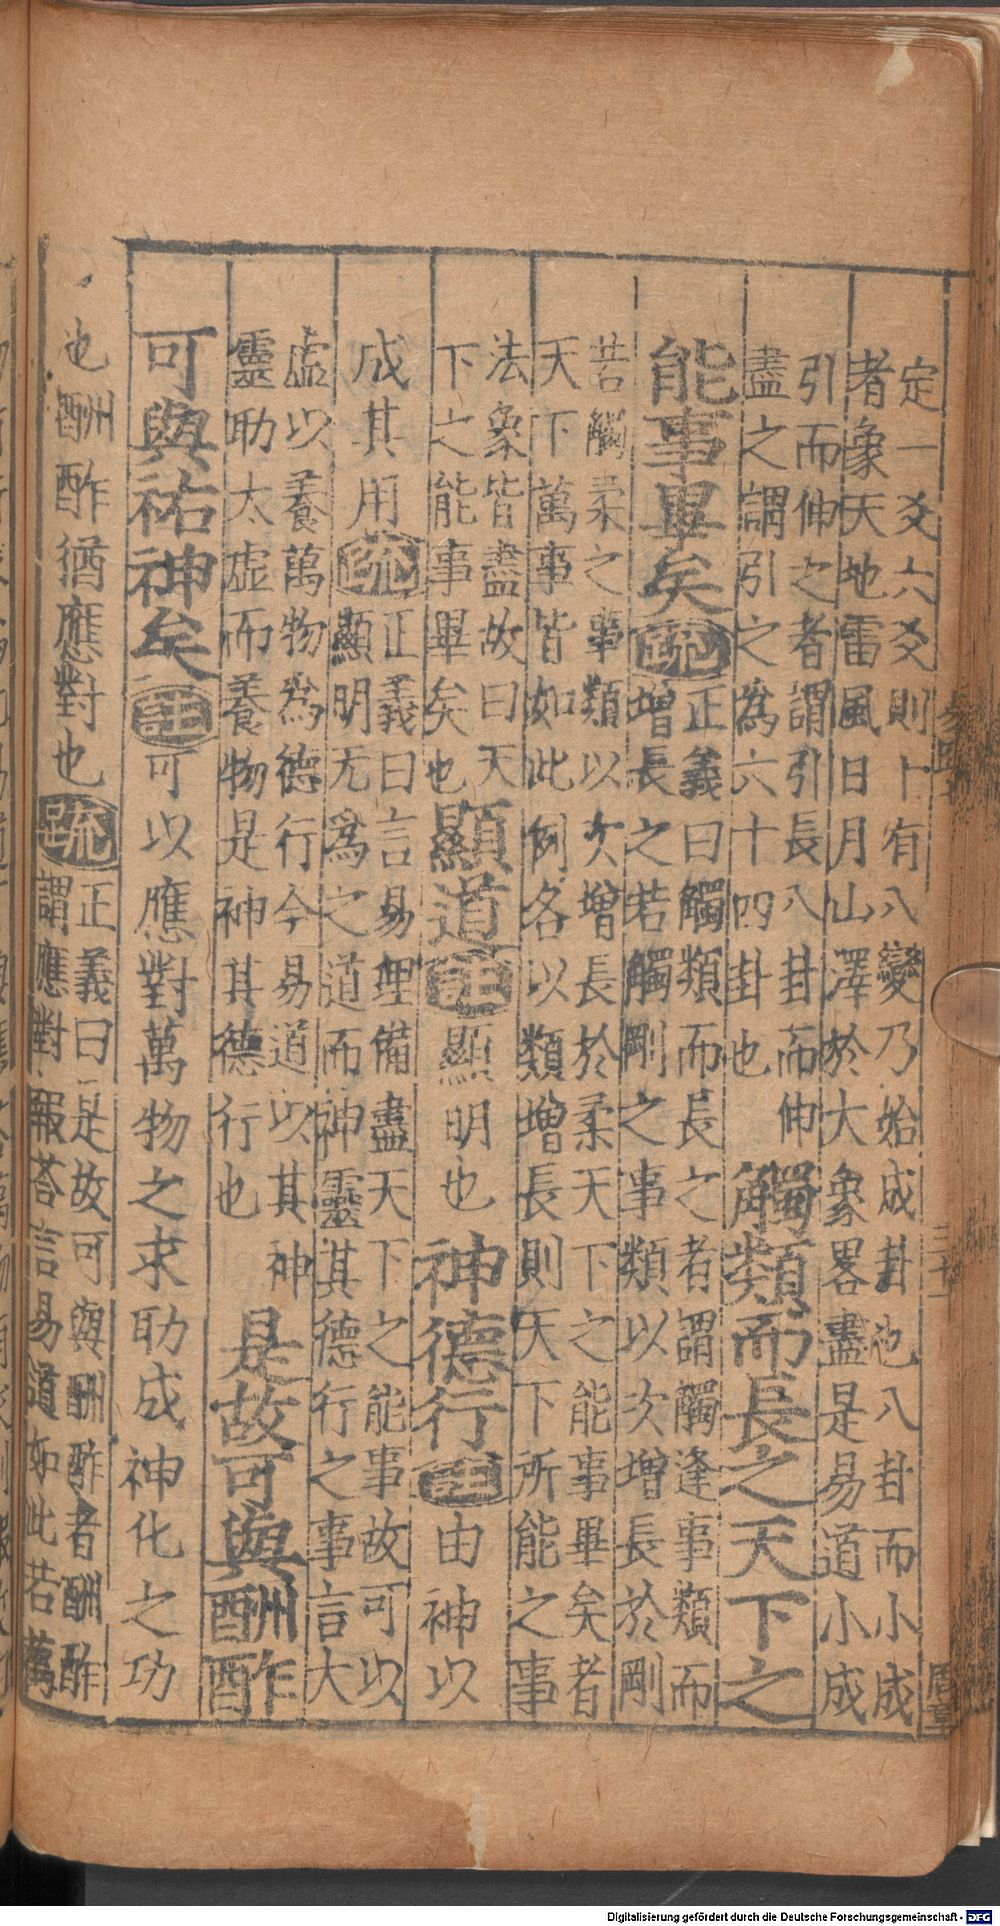 定一爻六爻則十有八變乃始成卦也八卦而小成
者象天地雷風日月山澤於大象畧盡是易道小成
引而伸之者謂引長八卦而伸
盡之謂引之為六十四卦也
觸類而長之天下之
能事畢矣
疏
正義曰觸類而長之者謂觸逢事類而
增長之若觸剛之事類以次增長於剛
若觸柔之事類以次增長於柔天下之能事畢矣者
天下萬事皆如此例各以類增長則天下所能之事
法象皆盡故曰天
下之能事畢矣也
顯道
注
顯明也
神德行
注
由神以
成其用
疏
正義曰言易理備盡天下之能事故可以
顯明无為之道而神靈其德行之事言大
虛以養萬物為德行今易道以其神
靈助太虛而養物是神其德行也
是故可與酬酢
可與祐神矣
注
可以應對萬物之求助成神化之功
也酬酢猶應對也
疏
正義曰是故可與酬酢者酬酢
謂應對報荅言易道如此若萬
Digitalisierung gefördert durch die Deutsche Forschungsgemeinschaft - DFG